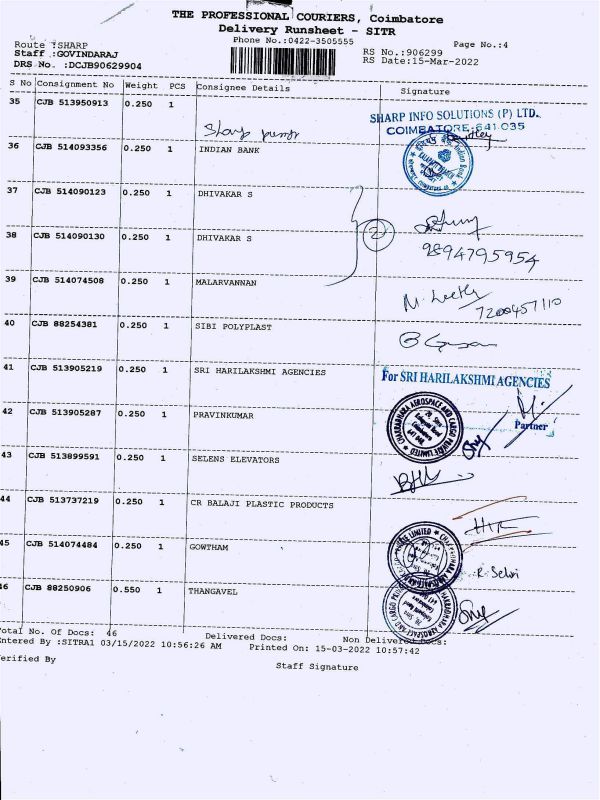 THE PROFESSIONAL COURIERS, Coimbatore
Delivery Runsheet - SITR
Phone No.:0422-3505555
Page No.:4
Route :SHARP
Staff :GOVINDARAJ
DRS No. :DCJB90629904
RS No.:906299
RS Date:15-Mar-2022
S No Consignment No Weight PCS Consignee Details Signature
35 CJB 513950913 0.250 1
SHARP INFO SOLUTIONS (P) LTD.
COIMBATORE-641 035
Sharp pump
36 CJB 514093356 0.250 1 INDIAN BANK
37 CJB 514090123 0.250 1 DHIVAKAR S
2
38 CJB 514090130 0.250 1 DHIVAKAR S
9894795954
39 CJB 514074508 0.250 1 MALARVANNAN
7200457110
40 CJB 88254381 0.250 1 SIBI POLYPLAST
41 CJB 513905219 0.250 1 SRI HARILAKSHMI AGENCIES
For SRI HARILAKSHMI AGENCIES
Partner
42 CJB 513905287 0.250 1 PRAVINKUMAR
CHAKRADHARA AEROSPACE AND CARGO PRIVATE LIMITED
43 CJB 513899591 0.250 1 SELENS ELEVATORS
44 CJB 513737219 0.250 1 CR BALAJI PLASTIC PRODUCTS
45 CJB 514074484 0.250 1 GOWTHAM
R. Selvi
46 CJB 88250906 0.550 1 THANGAVEL
Total No. Of Docs: 46 Delivered Docs: Non Delivered Docs:
Entered By :SITRA1 03/15/2022 10:56:26 AM Printed On: 15-03-2022 10:57:42
Verified By
Staff Signature